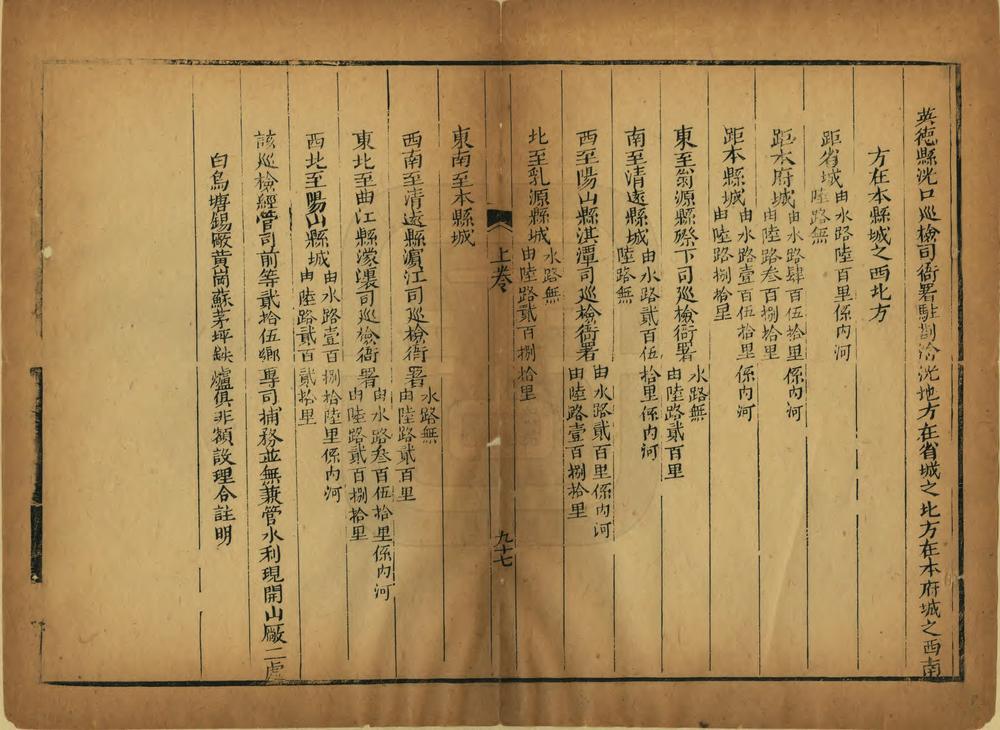 英德縣洸口巡檢司衙署駐劄洽洸地方在省城之北方在本府城之西南
方在本縣城之西北方
距省城由水路陸百里係內河
陸路無
距本府城由水路肆百伍拾里係內河
由陸路叁百捌拾里
距本縣城由水路壹百伍拾里係內河
由陸路捌拾里
東至翁源縣磜下司巡檢衙署水路無
由陸路貳百里
南至清遠縣城由水路貳百伍拾里係內河
陸路無
西至陽山縣淇潭司巡檢衙署由水路貳百里係內河
由陸路壹百捌拾里
北至乳源縣城水路無
由陸路貳百捌拾里
上卷
九十七
東南至本縣城
西南至清遠縣濵江司巡檢衙署水路無
由陸路貳百里
東北至曲江縣濛𣸣司巡檢衙署由水路叁百伍拾里係內河
由陸路貳百捌拾里
西北至陽山縣城由水路壹百捌拾陸里係內河
由陸路貳百貳拾里
該巡檢經管司前等貳拾伍鄉專司捕務並無兼管水利現開山廠二處
白鳥塘錫廠黄崗蘇茅坪鉄爐俱非額設理合註明